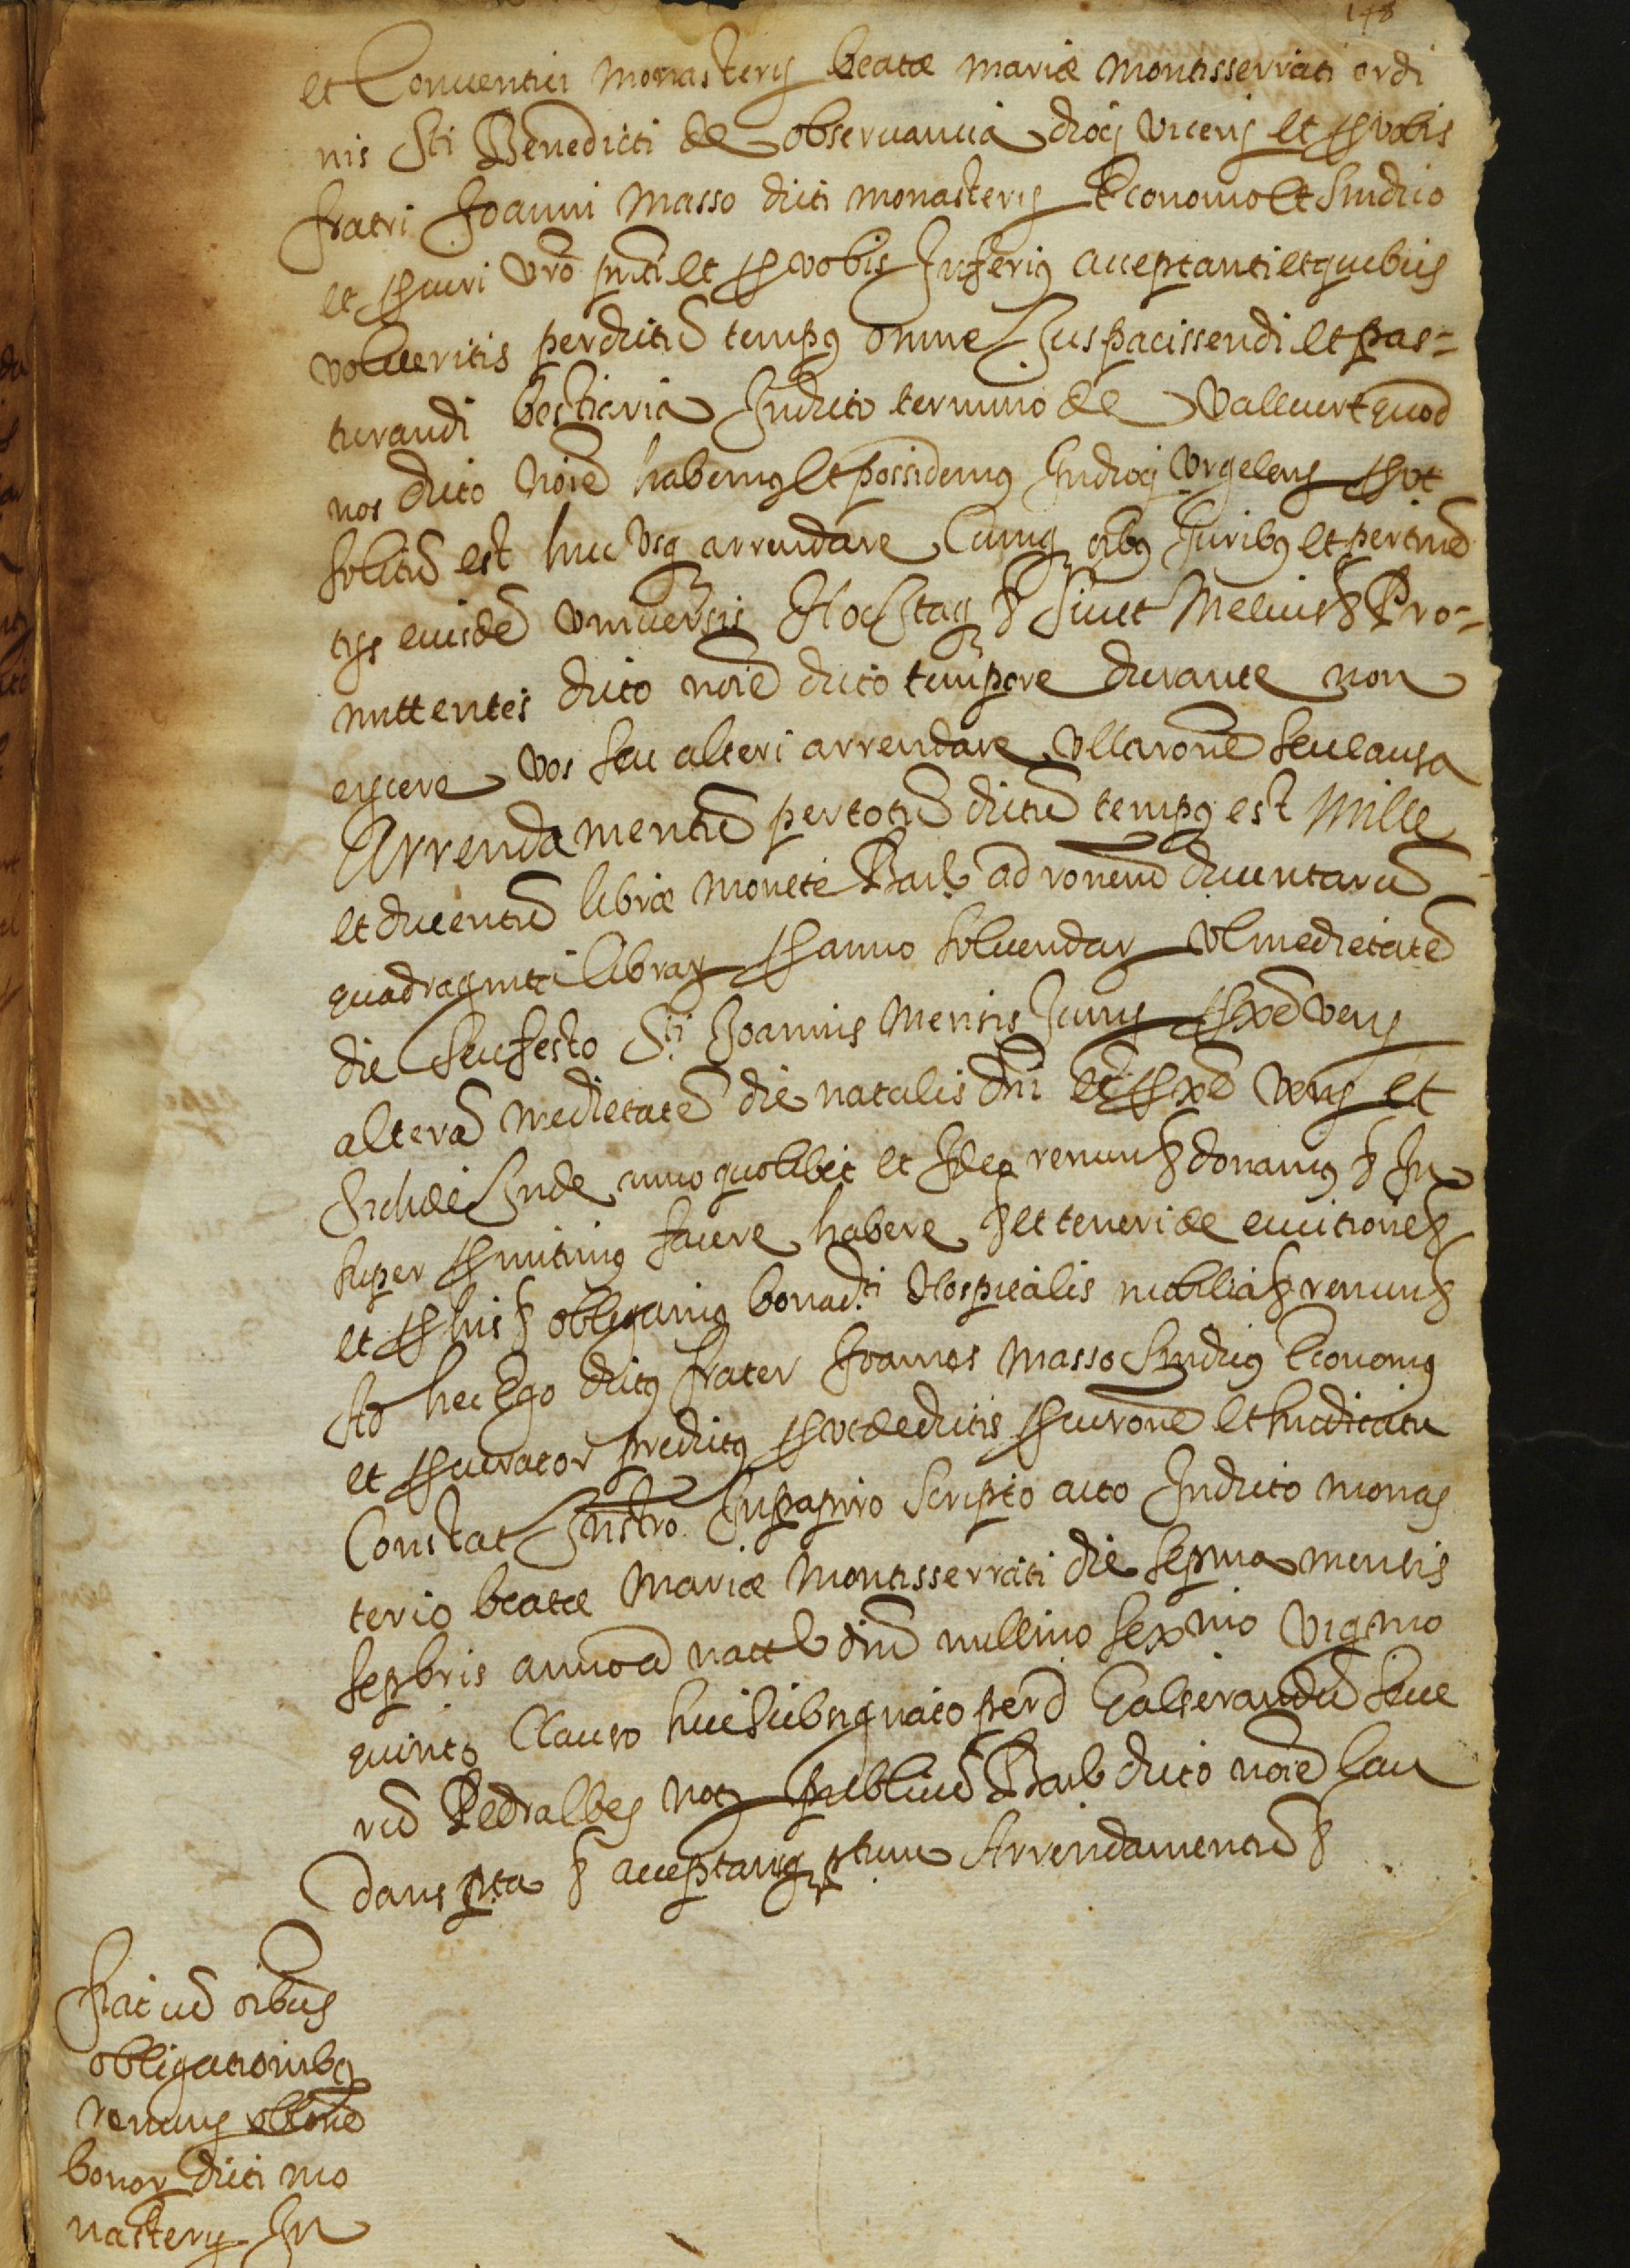 148
et Conuentui monasterij beatæ mariæ montisserrati ordi
nis Sti Benedicti de obseruancia diocs vicens et p vobis
fratri Joanni Masso dicti monasterij Economo et Sindico
et pcuri vro pnti et p vobis Inferius acceptanti et quibus
volueritis per dictū tempus omne Jus pacissendi et pas=
turandi bestiaria In dicto termino de Valluert quod
nos dicto noīe habemus et possidemus In diocj Vrgelens put
solitū est huc vsq arrendare Cumq oibus Juribus et pertinē
tijs euisdē vniuersis Hoc Itaq & sicut Melius & Pro=
mittentes dicto noīe dicto tempore durante non
eijcere vos seu alteri arrendare vlla rone seu causa
Arrendamentū per totū dictū tempus est Mille
et ducentū libræ monete Barb ad ronem ducentarū
quadraginta librar p anno soluendar vl medietatē
die seu festo Sti Joannis Mensis Junij pxē venj
alterā medietatē die natalis dni et pxē venj et
sich de Inde anno quolibet et Ideo renun & donamus & In
super pmitimus facere habere & et teneri de euictione &
et p his & obligamus bona dti Hospitalis mobilia & renun &
Ad hec Ego dictus frater Joannes Masso Sindicus Economus
et pcurator predictus put de dictis pcurone et sindicatu
Constat Instro In papiro scripto acto In dicto monas
terio beatæ Mariæ Montisserrati die septima mensis
sepbris anno a natl dni millmo sexmo vigmo
quinto Clauso hui subsignato per d Galserandū Seue
rū Pedralbes notm publicū Barb dicto noīe lau
dans pta & acceptansq phuc Arrendamentū &
fiat cū oibus
obligationibus
renuns obbone
bonor dicti mo
nasterij In